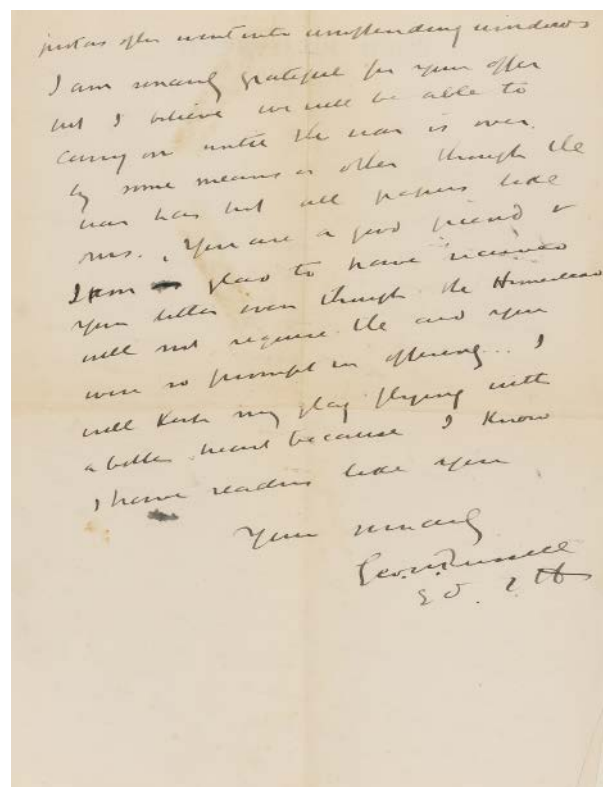 just as often went into unoffending windows
I am sincerely grateful for your offer
but I believe we will be able to
carry on until the war is over.
by some means or other though the
war has hit all papers like
ours. You are a good friend &
I am glad to have received
your letter even though the Homestead
will not require the aid you
were so prompt in offering... I
will keep my flag flying with
a better heart because I know
I have readers like you
Yours sincerely
Geo. W. Russell
Ed. I H